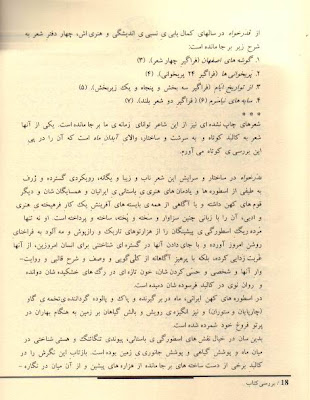 از قدرخواه در سالهای کمال یابی ی نسبی ی اندیشگی و هنری اش، چهار دفتر شعر به
شرح زیر بر جا مانده است:
۱. گوشه های اصفهان (فراگیر چهار شعر). (۳)
۲. پریخوانی ها (فراگیر ۲۴ پریخوانی). (۴)
۳. از تواریخ ایام (فراگیر سه بخش و پنجاه و یک زیربخش). (۵)
۴. سایه های نیاسرم (۶) (فراگیر دو شعر بلند). (۷)
* * *
شعرهای چاپ نشده ای نیز از این شاعر توانای زمانه ی ما بر جا مانده است. یکی از آنها
شعر به کالبد کوتاه و به سرشت و ساختار، والای آبدان ماه است که آن را در پی
این بررسی ی کوتاه می آورم.
قدرخواه در ساختار و سرایش این شعر ناب و زیبا و یگانه، رویکردی گسترده و ژرف
به طیفی از اسطوره ها و یادمان های هنری ی باستانی ی ایرانیان و همسایگان شان و دیگر
قوم های کهن داشته و با آگاهی از همه ی بایسته های آفرینش یک کار فرهیخته ی هنری
و ادبی، آن را با زبانی چنین سزاوار و سخته و پخته، ساخته و پرداخته است. او نه تنها
مرده ریگ اسطورگی ی پیشینگان را از هزارتوهای تاریک و رازپوش و مه آلود به فراخنای
روشن امروز آورده و با جای دادن آنها در گستره ای شناختی برای انسان امروزین، از آنها
غربت زدایی کرده، بلکه با پرهیز آگاهانه از کلی گویی و وصف و شرح قالبی و روایت-
وار آنها و شخصی و حسی کردن شان، خون تازه ای در رگ های خشکیده شان دوانده
و روان نوی در کالبد فرسوده شان دمیده است.
در اسطوره های کهن ایرانی، ماه در بر گیرنده و پاک و پالوده گرداننده ی تخمه ی گاو
(چارپایان و ستوران) و نیز انگیزه ی رویش و بالش گیاهان بر زمین به هنگام بهاران در
پرتو فروغ خود شمرده شده است.
بدین سان در خیال نقش های اسطورگی ی باستانی، پیوندی تنگاتنگ و هستی شناختی در
میان ماه و پوشش گیاهی و پوشش جانوری ی زمین بوده است. بازتاب این نگرش را در
کالبد برخی از دست ساخته های بر جا مانده از هزاره های پیشین و از آن میان در نگاره -
18 / بررسی کتاب